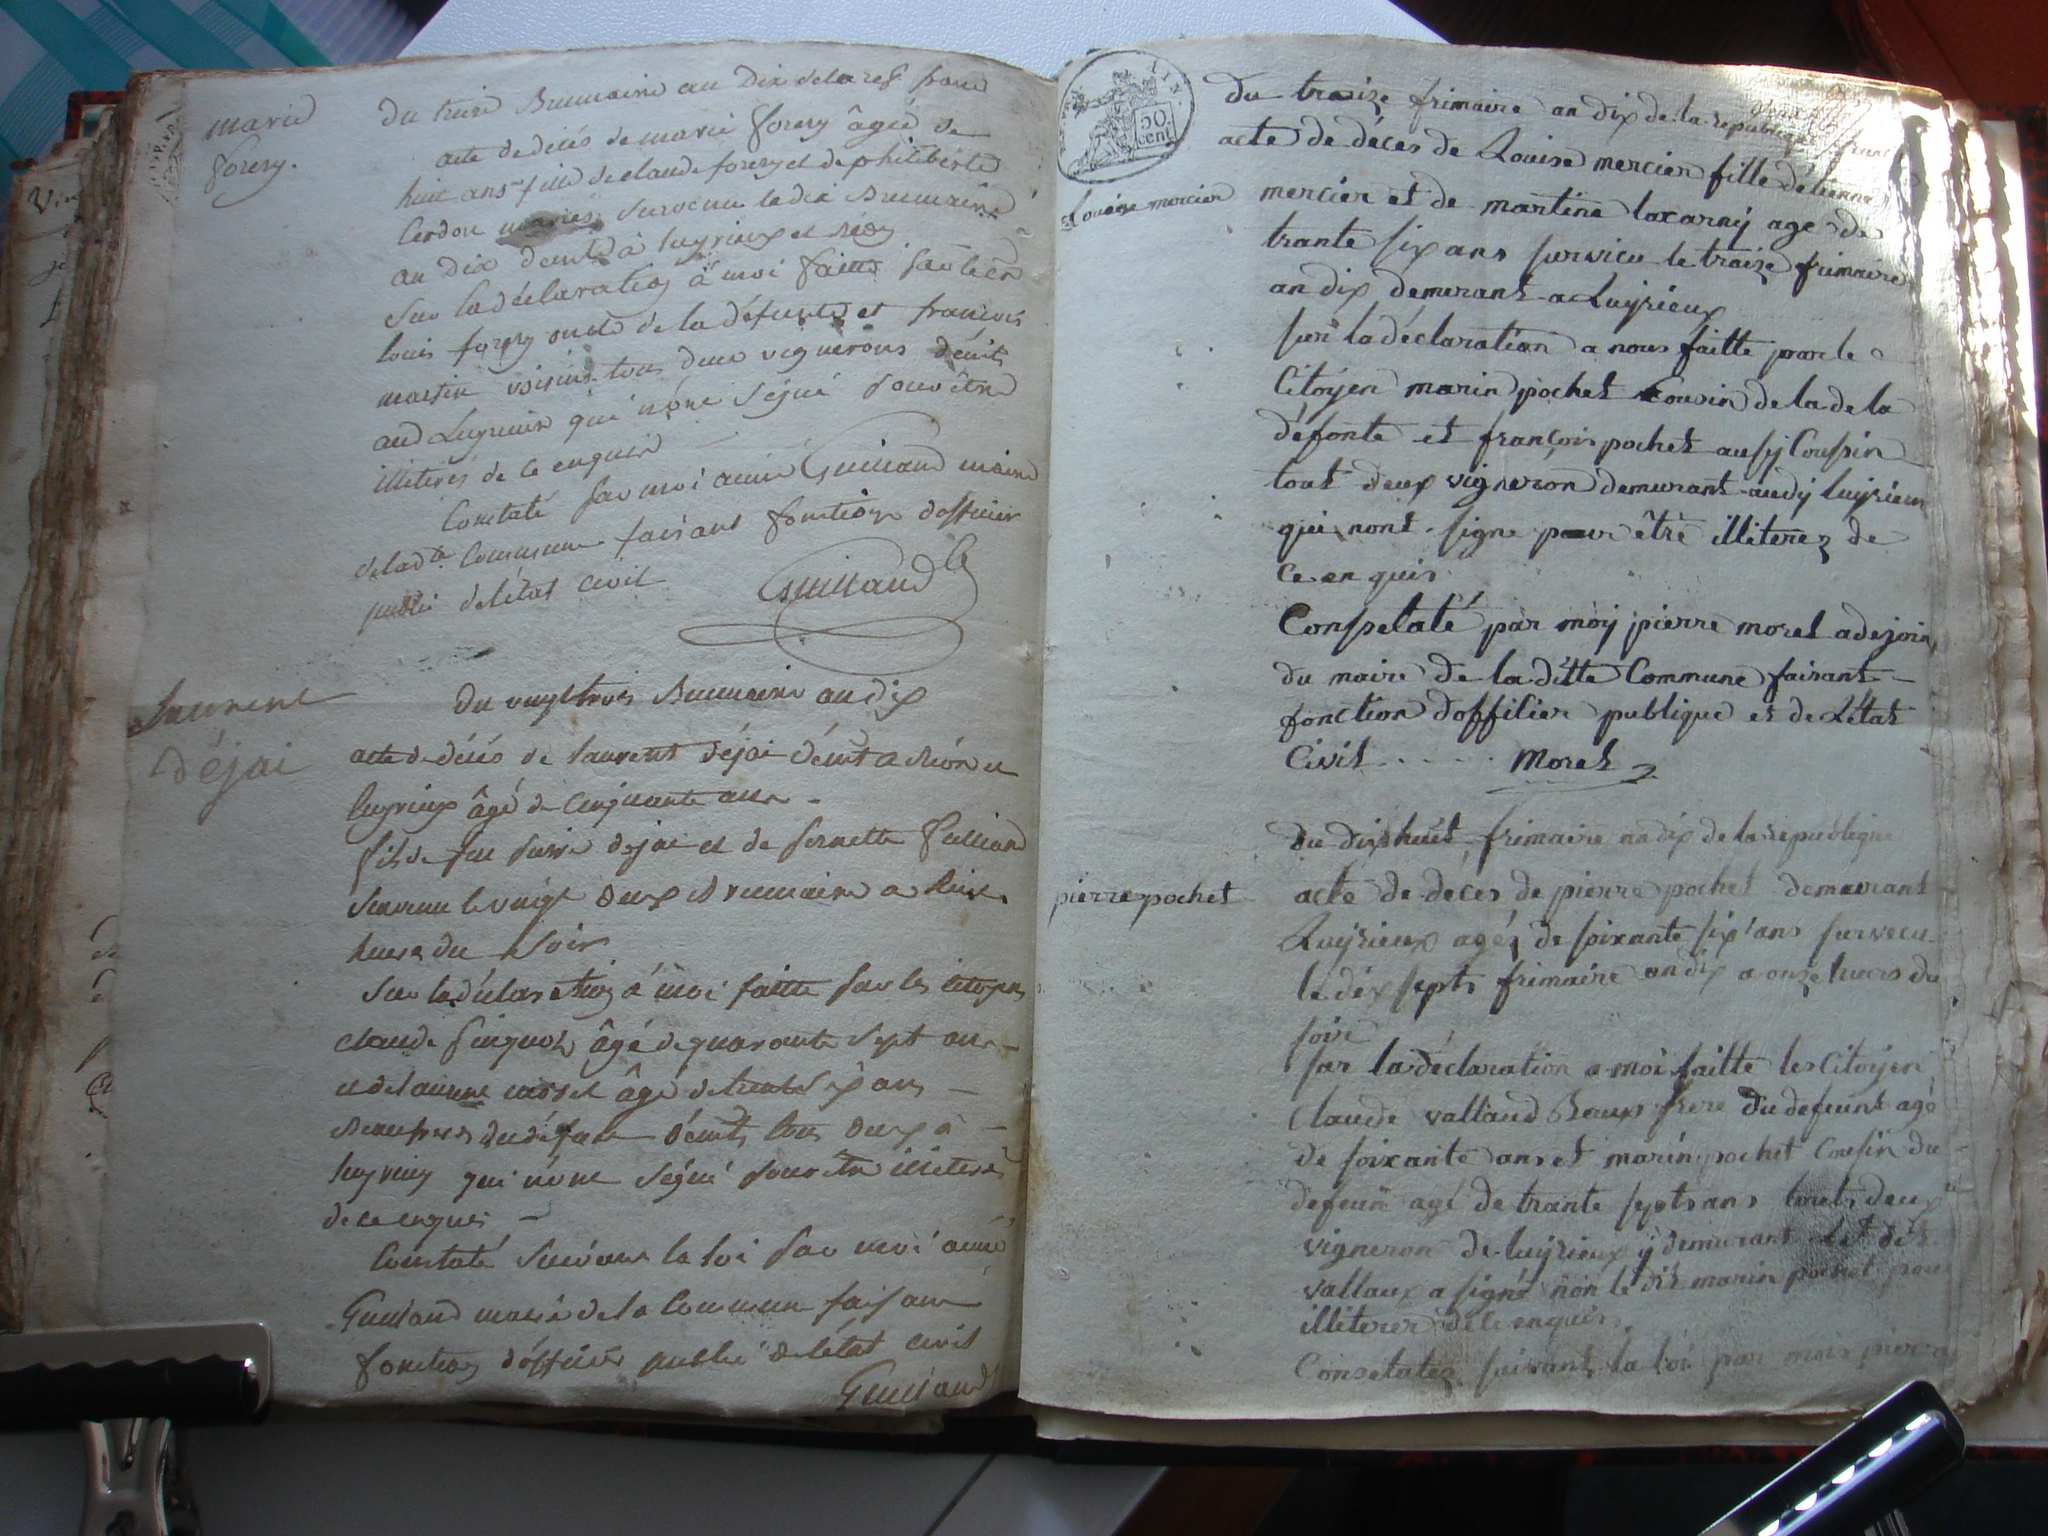 marie
forery.
du treize Brumaire an dix de la rep. franc
acte de décés de marie forery âgée de
huit ans fille de claude forery et de philiberte
Cerdon mariés survenu le dix Brumaire
an dix demt à luyrieux et
Sur la déclaration à moi faitte par les cn
louis forery oncle de la défunte et francois
martin voisins tous deux vignerons demts
aud Luyrieux qui n'ont signé pour être
illiterés de ce enquis
Constaté par moi aimé Guilland maire
de lad.te Commune faisant fonction d'officier
public de l'état civil
Guilland
laurent
déjai
du vingt trois Brumaire an dix
acte de décés de laurent déjai demt a
luyrieux âgé de Cinquante ans
fils de feu pierre dejai et de pernette
Survenu le vingt deux Brumaire a
heures du soir
Sur la déclaration à moi faitte par les citoyens
claude âgé de quarante sept ans
et de morel âgé de trente six ans
Beaufrere du défunt demts tous deux à
luyrieux qui n'ont signé pour être illiteré
de ce enquis
Constaté suivant la loi par moi aimé
Guilland maire de la Commune faisant
fonction d'officier public de l'état civil
Guilland
50
cent
Louise mercier
du traize frimaire an dix de la republique franc
acte de déces de Louise mercier fille détienne
mercier et de martine laxarny age de
trante six ans survicu le traize frimaire
an dix demurant a Luyrieux
sur la déclaration a nous faitte par le
Citoyen marin pochet Cousin de la de la
défonte et françois pochet aussy Coussin
tout deux vigneron demurant audy luyrieux
qui nont signe pour être illiterez de
ce enquis
Conssetaté par moy pierre morel adejoin
du maire de la ditte Commune faisant
fonction d'offilier publique et de L'état
Civil . . . . . Morel
du dix huit frimaire an dix de la republique
pierre pochet
acte de déces de pierre pochet demeurant
Luyrieux agéz de soixante six ans survecu
le dix septs frimaire an dix a onze heurs du
soire
sur la déclaration a moi faitte les Citoyen
Claude valland Beaux frere du defeunt agé
de soixante ans et marin pochet Cousin du
defeun agé de trante septs ans touts deux
vigneron de luyrieux y demurant Let dit
vallaux a signé non le dit marin pochet pour
illiterer de ce enquis.
Consetatez suivant la loi par mois pierre